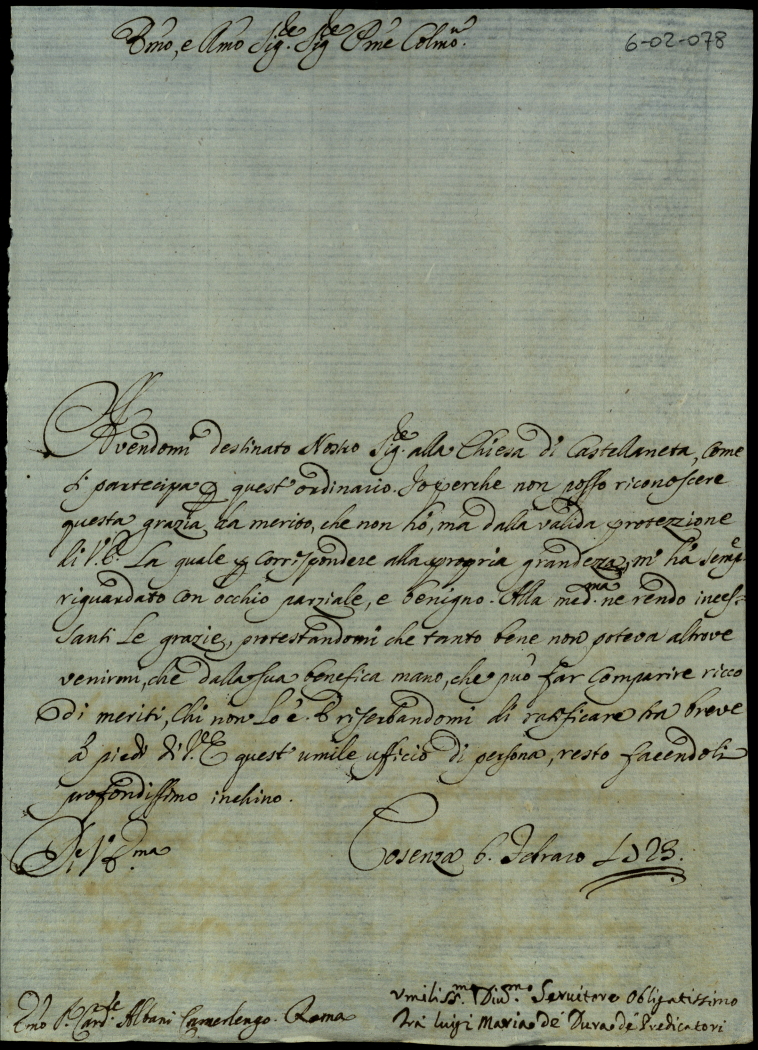 Emo, e Rmo Sig.re Sig.re Pne Colmo.
6-02-078
Avendomi destinato Nostro Sig.re alla Chiesa di Castellaneta, come
si partecipa p quest'ordinario. Io perche non posso riconoscere
questa grazia da merito, che non hò, ma dalla valida protezzione
di V. E. La quale p corrispondere alla propria grandezza, m'hà semp.
riguardato con occhio parziale, e benigno. Alla med.ma ne rendo inces-
santi le grazie, protestandomi che tanto bene non poteva altrove
venirmi, che dalla sua benefica mano, che può far comparire ricco
di meriti, Chi non Lo è. E riserbandomi di ratificare tra breve
a' piedi di V. E quest'umile ufficio di persona, resto facendoli
profondissimo inchino.
Di V. E.ma
Cosenza 6. Febraro 1723.
Emo S.r Card.le Albani Camerlengo. Roma
Umiliss.mo Diu.mo Seruitore Obligatissimo
Frà Luigi Maria de Dura de Predicatori